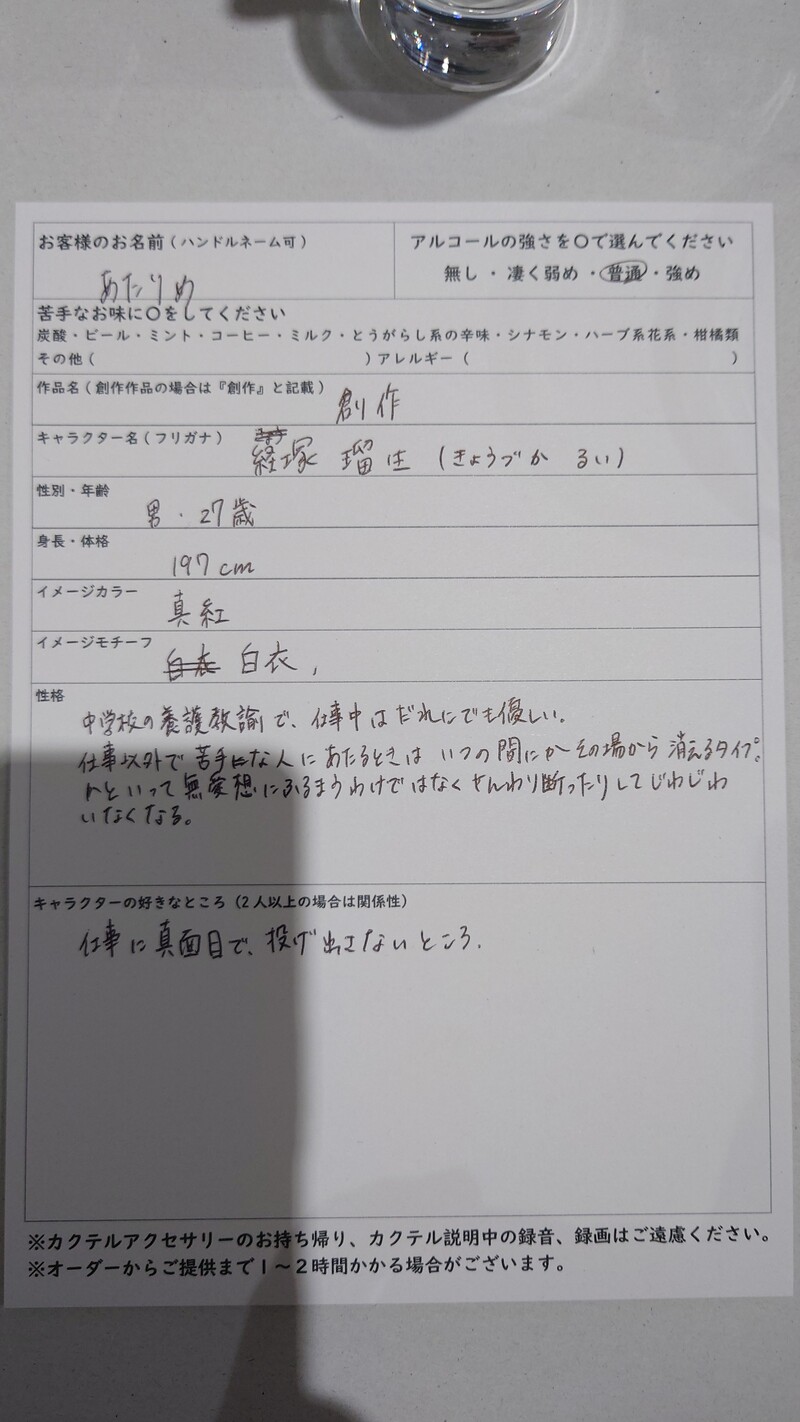 お客様のお名前（ハンドルネーム可）
あたりめ
アルコールの強さを〇で選んでください
無し・凄く弱め・普通・強め
苦手なお味に〇をしてください
炭酸・ビール・ミント・コーヒー・ミルク・とうがらし系の辛味・シナモン・ハーブ系花系・柑橘類
その他（ ）アレルギー（ ）
作品名（創作作品の場合は『創作』と記載）
創作
キャラクター名（フリガナ）
経塚 瑠生（きょうづか るい）
性別・年齢
男・27歳
身長・体格
197cm
イメージカラー
真紅
イメージモチーフ
白衣 白衣,
性格
中学校の養護教諭で、仕事中はだれにでも優しい。
仕事以外で苦手な人にあたるときは いつの間にかその場から消えるタイプ。
といって無愛想にふるまうわけではなくやんわり断ったりしてじわじわ
いなくなる。
キャラクターの好きなところ（2人以上の場合は関係性）
仕事に真面目で、投げ出さないところ.
※カクテルアクセサリーのお持ち帰り、カクテル説明中の録音、録画はご遠慮ください。
※オーダーからご提供まで1～2時間かかる場合がございます。